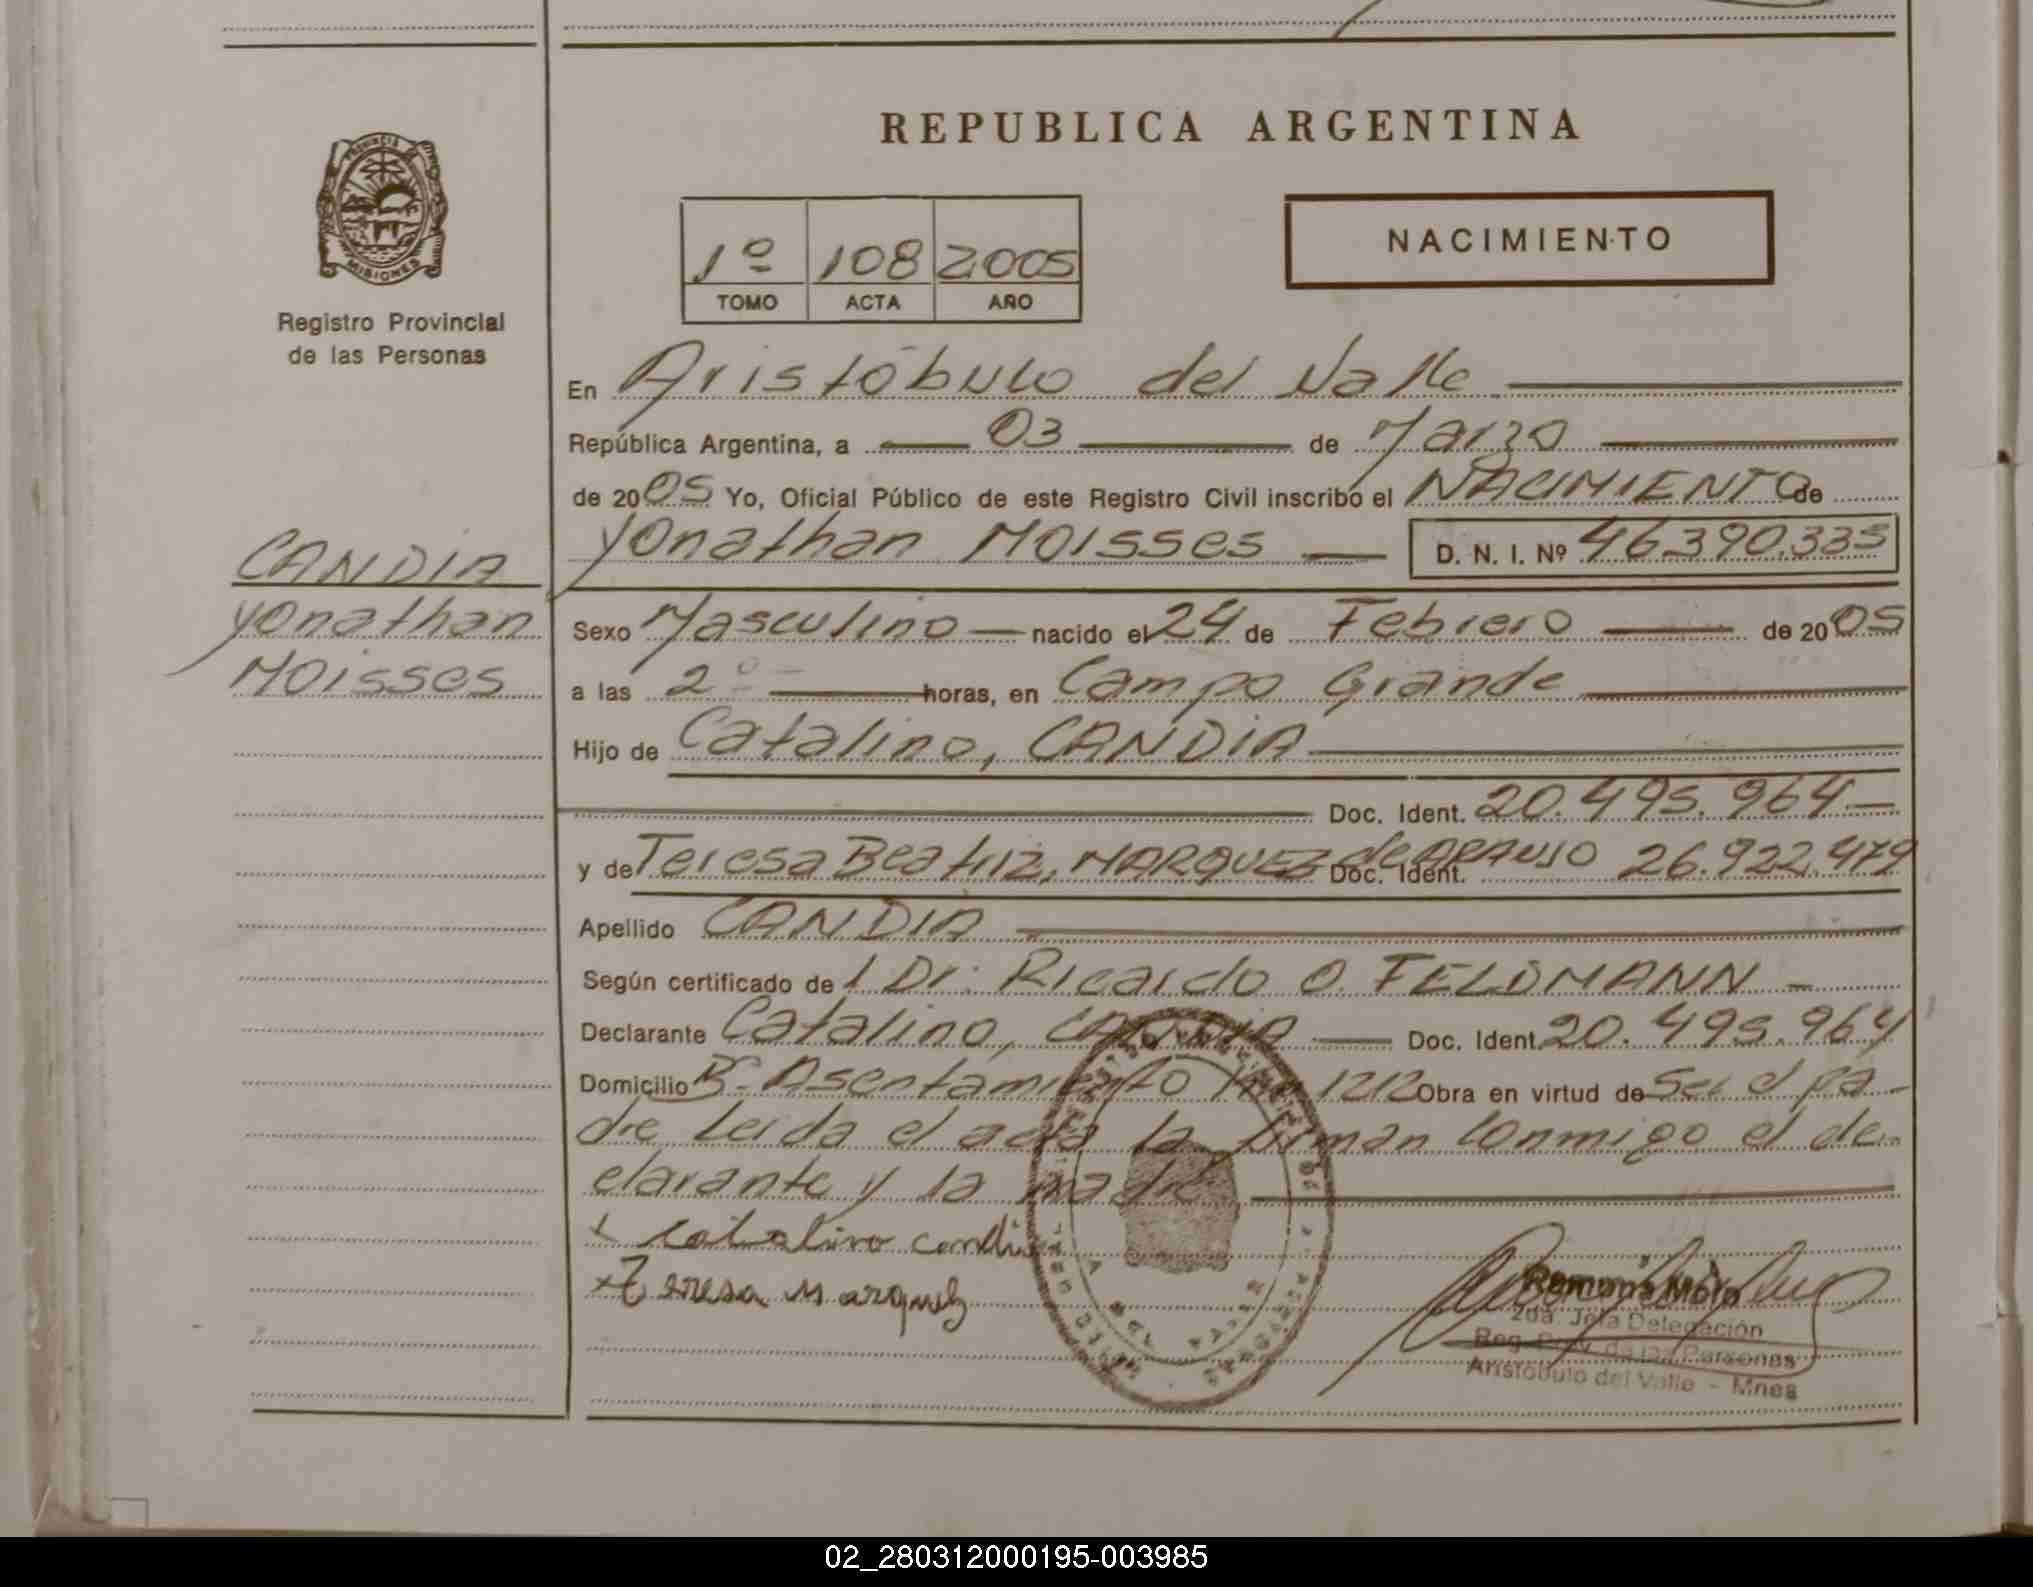 REPUBLICA ARGENTINA
PROVINCIA DE
MISIONES
Registro Provincial
de las Personas
1º 108 2005
TOMO ACTA AÑO
NACIMIENTO
En Aristóbulo del Valle
República Argentina, a 03 de Marzo
de 2005 Yo, Oficial Público de este Registro Civil inscribo el NACIMIENTO de
Yonathan Moisses D. N. I. Nº 46.390.335
CANDIA
Yonathan
Moisses
Sexo Masculino nacido el 24 de Febrero de 2005
a las 2º horas, en Campo Grande
Hijo de Catalino, CANDIA
Doc. Ident. 20.495.964
y de Teresa Beatriz, MARQUEZ de ARAUJO Doc. Ident. 26.922.479
Apellido CANDIA
Según certificado de l Dr. Ricardo O. FELDMANN
Declarante Catalino, CANDIA Doc. Ident. 20.495.964
Domicilio Bº Asentamiento Km 1212 Obra en virtud de Ser el pa-
dre Leida el acta la firman Conmigo el de-
clarante y la madre
x catalino candia
x Teresa Marquez
Ramona Mora
2da. Jefa Delegación
Reg. Prov. de las Personas
Aristóbulo del Valle - Mnes
02_280312000195-003985